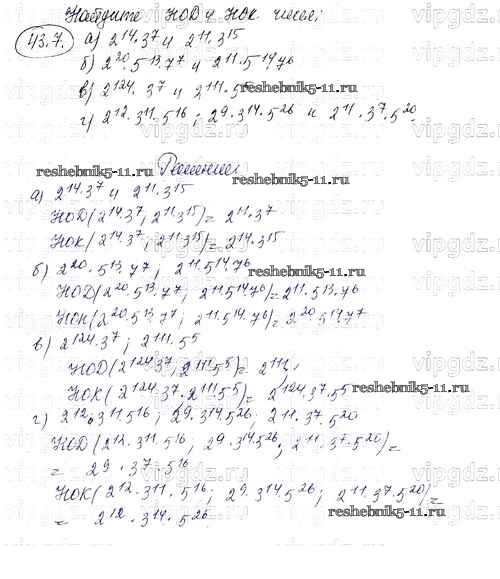 Найдите НОД и НОК чисел:
43.7. а) 2¹⁴·3⁷ и 2¹¹·3¹⁵
б) 2²⁰·5¹³·7⁷ и 2¹¹·5¹⁴·7⁶
в) 2¹²⁴·3⁷ и 2¹¹¹·5
г) 2¹²·3¹¹·5¹⁶; 2⁹·3¹⁴·5²⁶ и 2¹¹·3⁷·5²⁰.
Решение:
а) 2¹⁴·3⁷ и 2¹¹·3¹⁵
НОД(2¹⁴·3⁷; 2¹¹·3¹⁵)=2¹¹·3⁷
НОК(2¹⁴·3⁷; 2¹¹·3¹⁵)=2¹⁴·3¹⁵
б) 2²⁰·5¹³·7⁷; 2¹¹·5¹⁴·7⁶
НОД(2²⁰·5¹³·7⁷; 2¹¹·5¹⁴·7⁶)=2¹¹·5¹³·7⁶
НОК(2²⁰·5¹³·7⁷; 2¹¹·5¹⁴·7⁶)=2²⁰·5¹⁴·7⁷
в) 2¹²⁴·3⁷; 2¹¹¹·5⁵
НОД(2¹²⁴·3⁷; 2¹¹¹·5⁵)=2¹¹¹;
НОК(2¹²⁴·3⁷·2¹¹¹·5⁵)=2¹²⁴·3⁷·5⁵
г) 2¹²·3¹¹·5¹⁶; 2⁹·3¹⁴·5²⁶; 2¹¹·3⁷·5²⁰
НОД(2¹²·3¹¹·5¹⁶; 2⁹·3¹⁴·5²⁶; 2¹¹·3⁷·5²⁰)=
= 2⁹·3⁷·5¹⁶
НОК(2¹²·3¹¹·5¹⁶; 2⁹·3¹⁴·5²⁶; 2¹¹·3⁷·5²⁰)=
= 2¹²·3¹⁴·5²⁶
reshebnik5-11.ru
reshebnik5-11.ru
reshebnik5-11.ru
reshebnik5-11.ru
reshebnik5-11.ru
vipgdz.ru